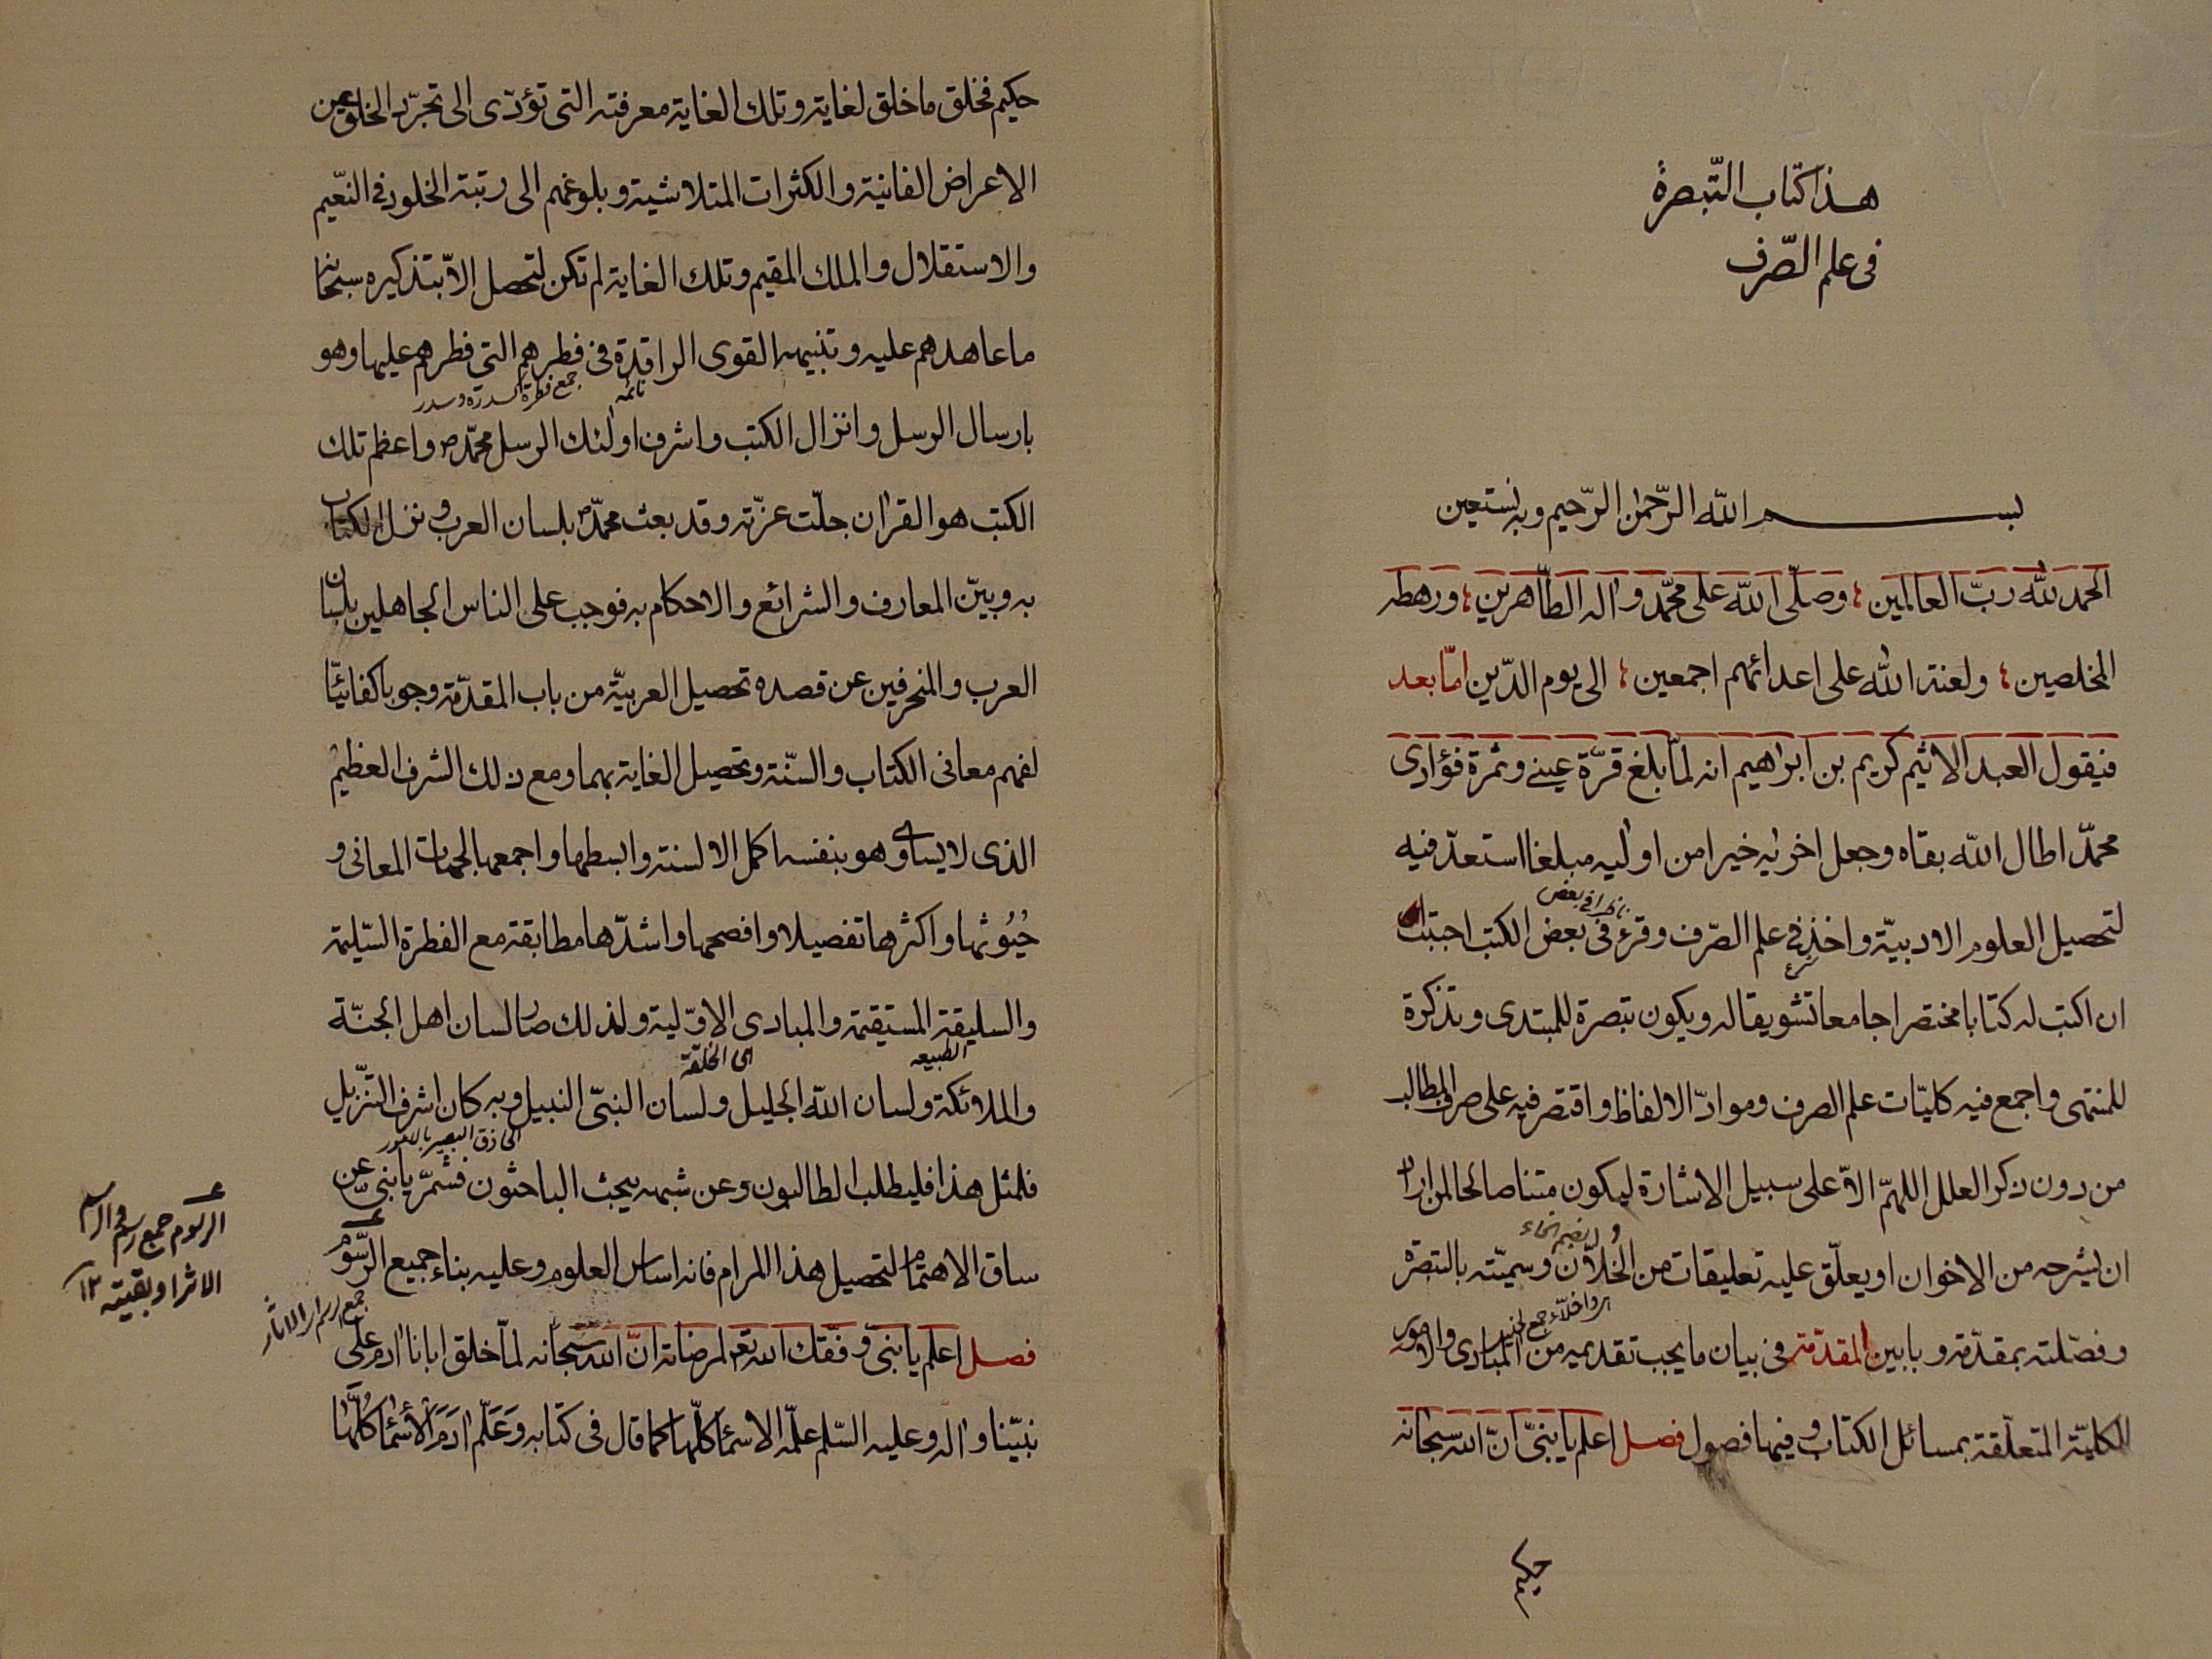 هذا كتاب التّبصرة
فى علم الصّرف
بسم الله الرّحمن الرّحيم وبه نستعين
الحمد لله ربّ العالمين؛ وصلّى الله على محمّد واٰله الطّاهرين؛ ورهطه
المخلصين؛ ولعنة الله على اعدائهم اجمعين؛ الى يوم الدّين امّا بعد
فيقول العبد الاثيم كريم بن ابراهيم انه لمّا بلغ قرّة عينى وثمرة فؤادى
محمّد اطال الله بقاه وجعل اخرٰيه خيرا من اولٰيه مبلغا استعدّ فيه
لتحصيل العلوم الادبيّة واخذ فى علم الصّرف وقرء فى بعض الكتب احببت
ان اكتب له كتابا مختصرا جامعا تشويقا له ويكون تبصرة للمبتدى وتذكرة
للمنتهى واجمع فيه كليّات علم الصرف وموادّ الالفاظ واقتصر فيه على صرف المطالب
من دون ذكر العلل اللهمّ الاّ على سبيل الاشارة ليكون متنا صالحا لمن اراد
ان يشرحه من الاخوان او يعلّق عليه تعليقات من الخُلاّن وسميّته بالتبصرة
وفصّلته بمقدّمة وبابين المقدّمة فى بيان ما يجب تقديمه من المبادى والامور
الكليّة المتعلّقة بمسائل الكتاب وفيها فصول فصل اعلم يا بنىّ انّ الله سبحانه
حكيم
حكيم فخلق ما خلق لغاية وتلك الغاية معرفته التى تؤدّى الى تجرّد الخلق عن
الاعراض الفانية والكثرات المتلاشية وبلوغهم الى رتبة الخلود فى النعّيم
والاستقلال والملك المقيم وتلك الغاية لم تكن لتحصل الاّ بتذكيره سبحانه
ما عاهدهم عليه وتنبيهه القوى الراقدة فى فطرهم التى فطرهم عليها وهو
نائمه جمع فطرة
بارسال الرسل وانزال الكتب واشرف اولٰئك الرسل محمّد ص واعظم تلك
الكتب هو القراٰن جلّت عزّته وقد بعث محمّد ص بلسان العرب ونزل الكتاب
به وبيّن المعارف والشرائع والاحكام به فوجب على الناس الجاهلين بلسان
العرب والمنحرفين عن قصده تحصيل العربيّة من باب المقدّمة وجوبا كفائيّا
لفهم معانى الكتاب والسّنة وتحصيل الغاية بهما ومع ذلك الشرف العظيم
الذى لا يساوى هو بنفسه اكمل الالسنة وابسطها واجمعها لجهات المعانى و
حُيُوثها واكثرها تفصيلا وافصحها واشدّها مطابقة مع الفطرة السّليمة
والسليقة المستقيمة والمبادى الاوّلية ولذلك صار لسان اهل الجنّة
الطبيعه اى الخلقة
والملائكة ولسان الله الجليل ولسان النبىّ النبيل وبه كان اشرف التنّزيل
الحاذق البصير بالامور
فلمثل هذا فليطلب الطالبون وعن شبهه يبحث الباحثون فشمّر يا بنىّ عن
ساق الاهتمام لتحصيل هذا المرام فانه اساس العلوم وعليه بناء جميع الرّسوم
فصل اعلم يا بنىّ وفّقك الله تع لمرضاته انّ الله سبحانه لمّا خلق ابانا اٰدم على
نبيّنا واٰله وعليه السّلم علّمه الاسماء كلّها كما قال فى كتابه وَعَلَّمَ اٰدَمَ الْأَسْمَاءَ كُلَّهَا
الرسوم جمع رسم والرسم
الاثر او بقيته ۱۲